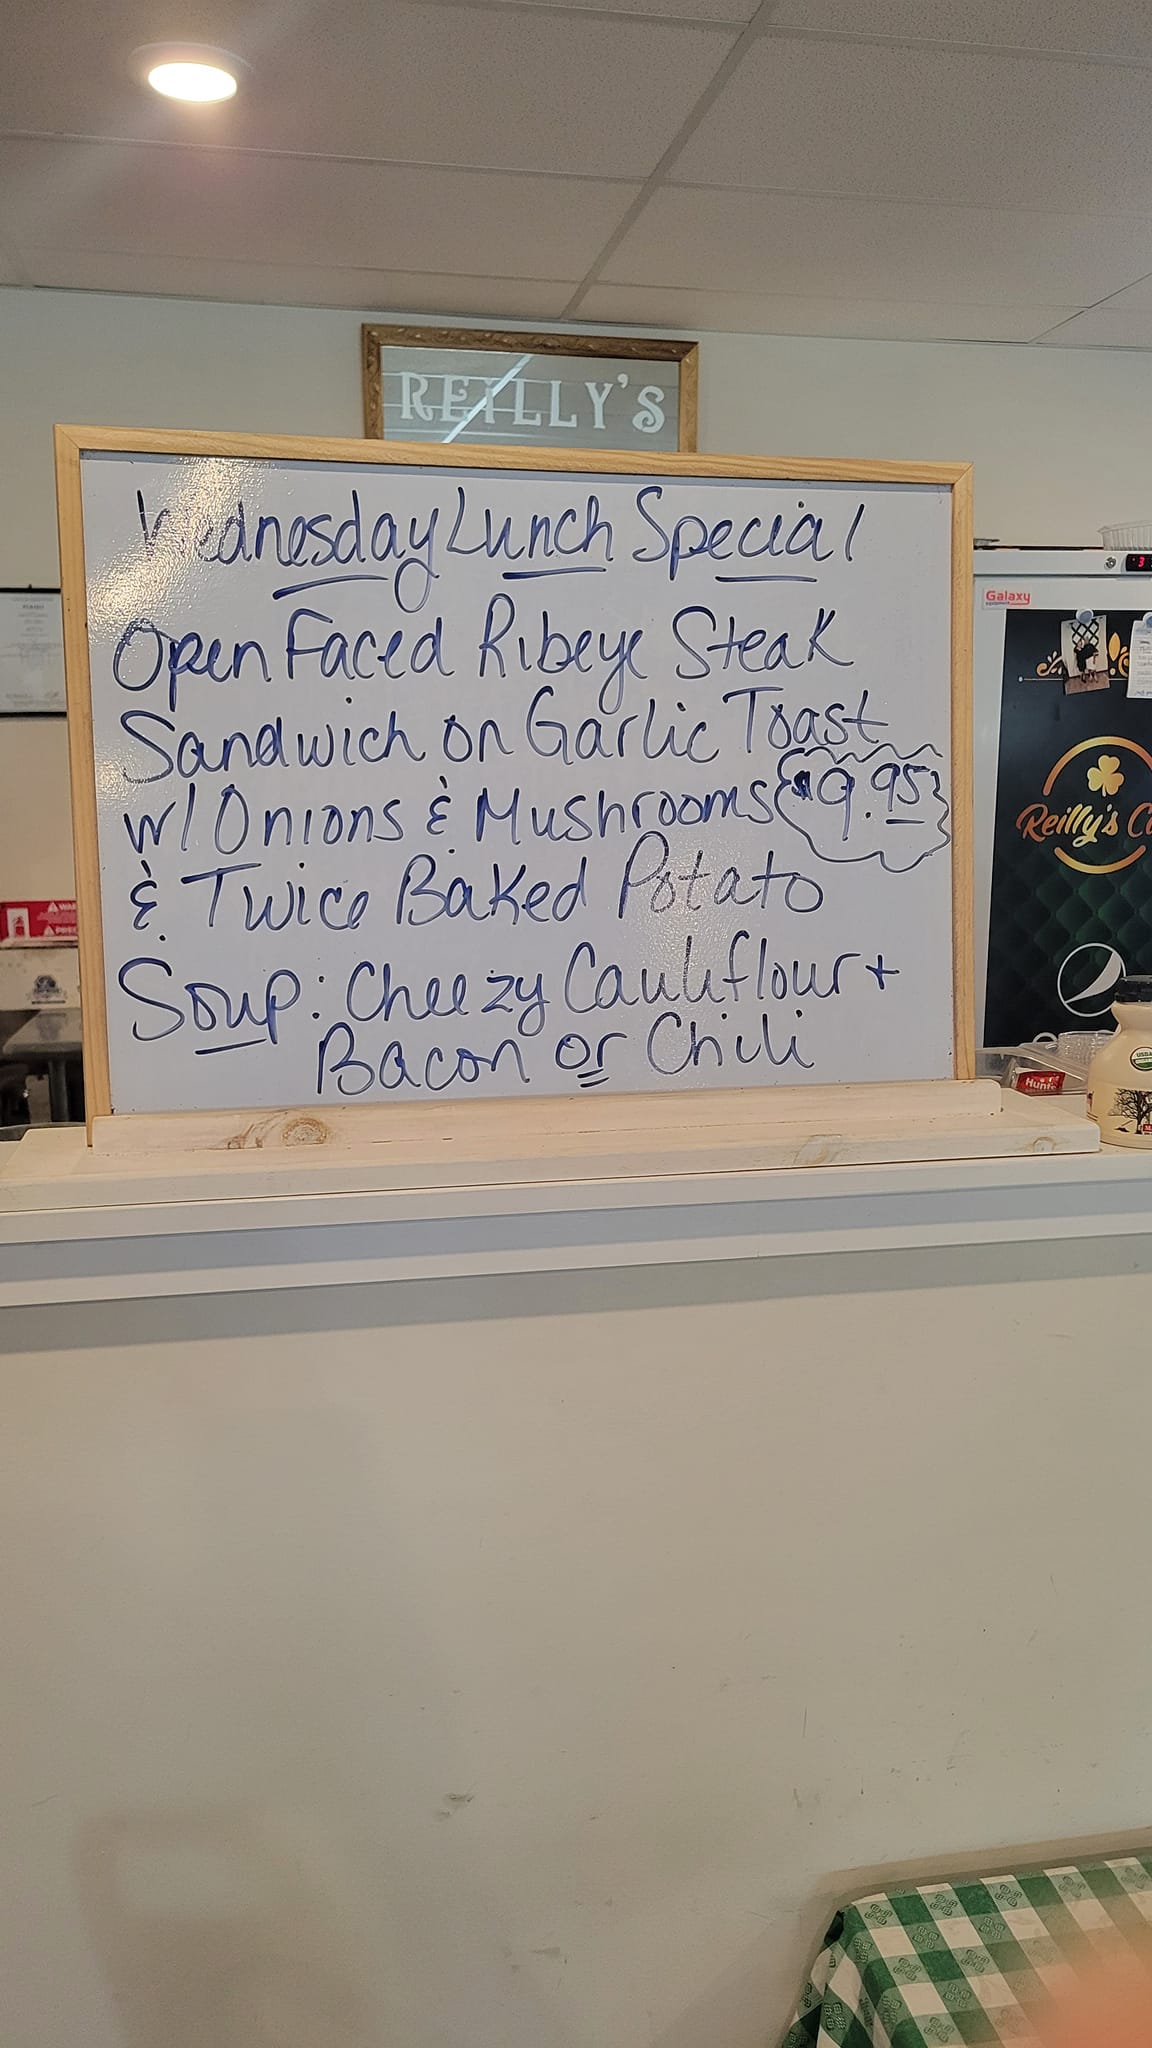 REILLY'S
Wednesday Lunch Special
Open Faced Ribeye Steak
Sandwich on Garlic Toast
w/ Onions & Mushrooms $9.95
& Twice Baked Potato
Soup: Cheezy Cauliflour +
Bacon or Chili
Galaxy
Reilly's
Hunt's
USDA